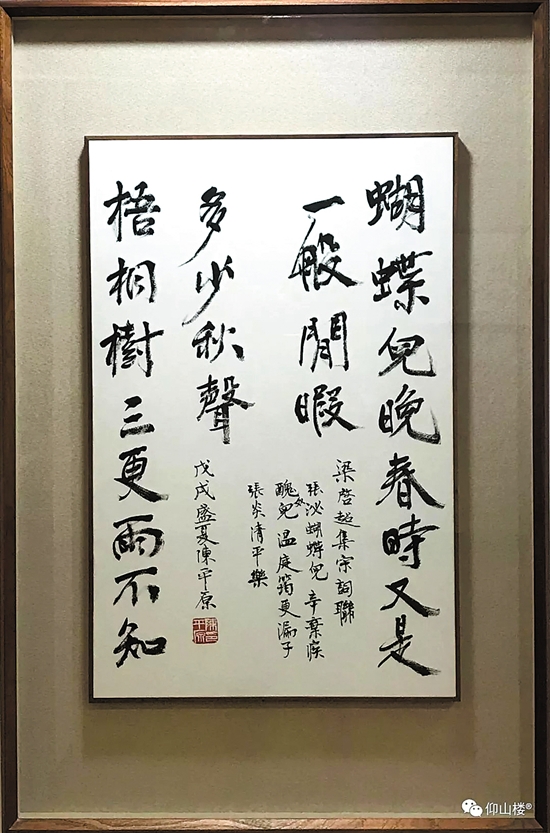 蝴蝶兒晚春時又是
一般閒暇
梁啓超集宋詞聯
張泌蝴蝶兒 辛棄疾
醜奴兒 温庭筠更漏子
張炎清平樂
多少秋聲
戊戌盛夏陳平原
梧桐樹三更雨不知
仰山楼®